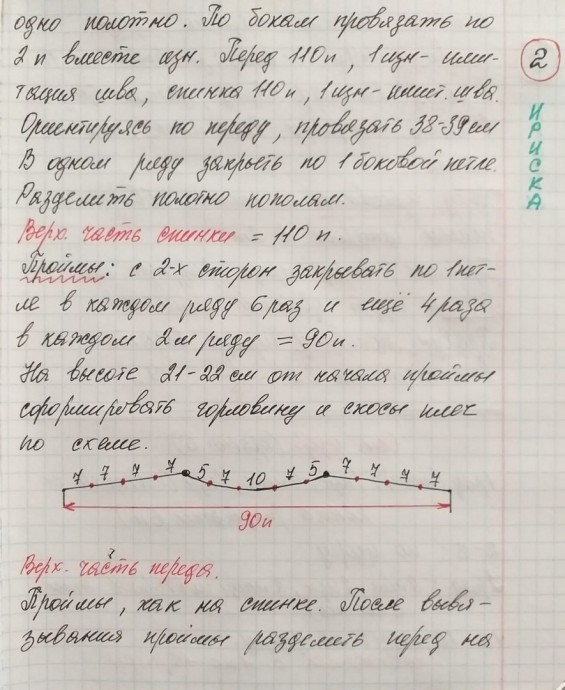 одно полотно. По бокам провязать по
2 п вместе изн. Перед 110п, 1изн- ими-
тация шва, спинка 110п, 1изн- имит. шва.
Ориентируясь по переду, провязать 38-39см
В одном ряду закрыть по 1 боковой петле.
Разделить полотно пополам.
Верх. часть спинки = 110 п.
Проймы: с 2-х сторон закрывать по 1 пет-
ле в каждом ряду 6 раз и ещё 4 раза
в каждом 2м ряду = 90п.
На высоте 21-22см от начала проймы
сформировать горловину и скосы плеч
по схеме.
7 7 7 7 5 7 10 7 5 7 7 7 7
90п
Верх. часть переда.
Проймы, как на спинке. После вывя-
зывания проймы разделить перед на
2
ИРИСКА